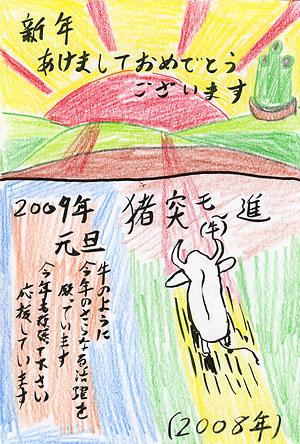 新年
あけましておめでとう
ございます
2009年
元旦
猪突モ進
(牛)
牛のように
今年のさらなる活躍を
願っています
今年も頑張て下さい
応援しています
(2008年)